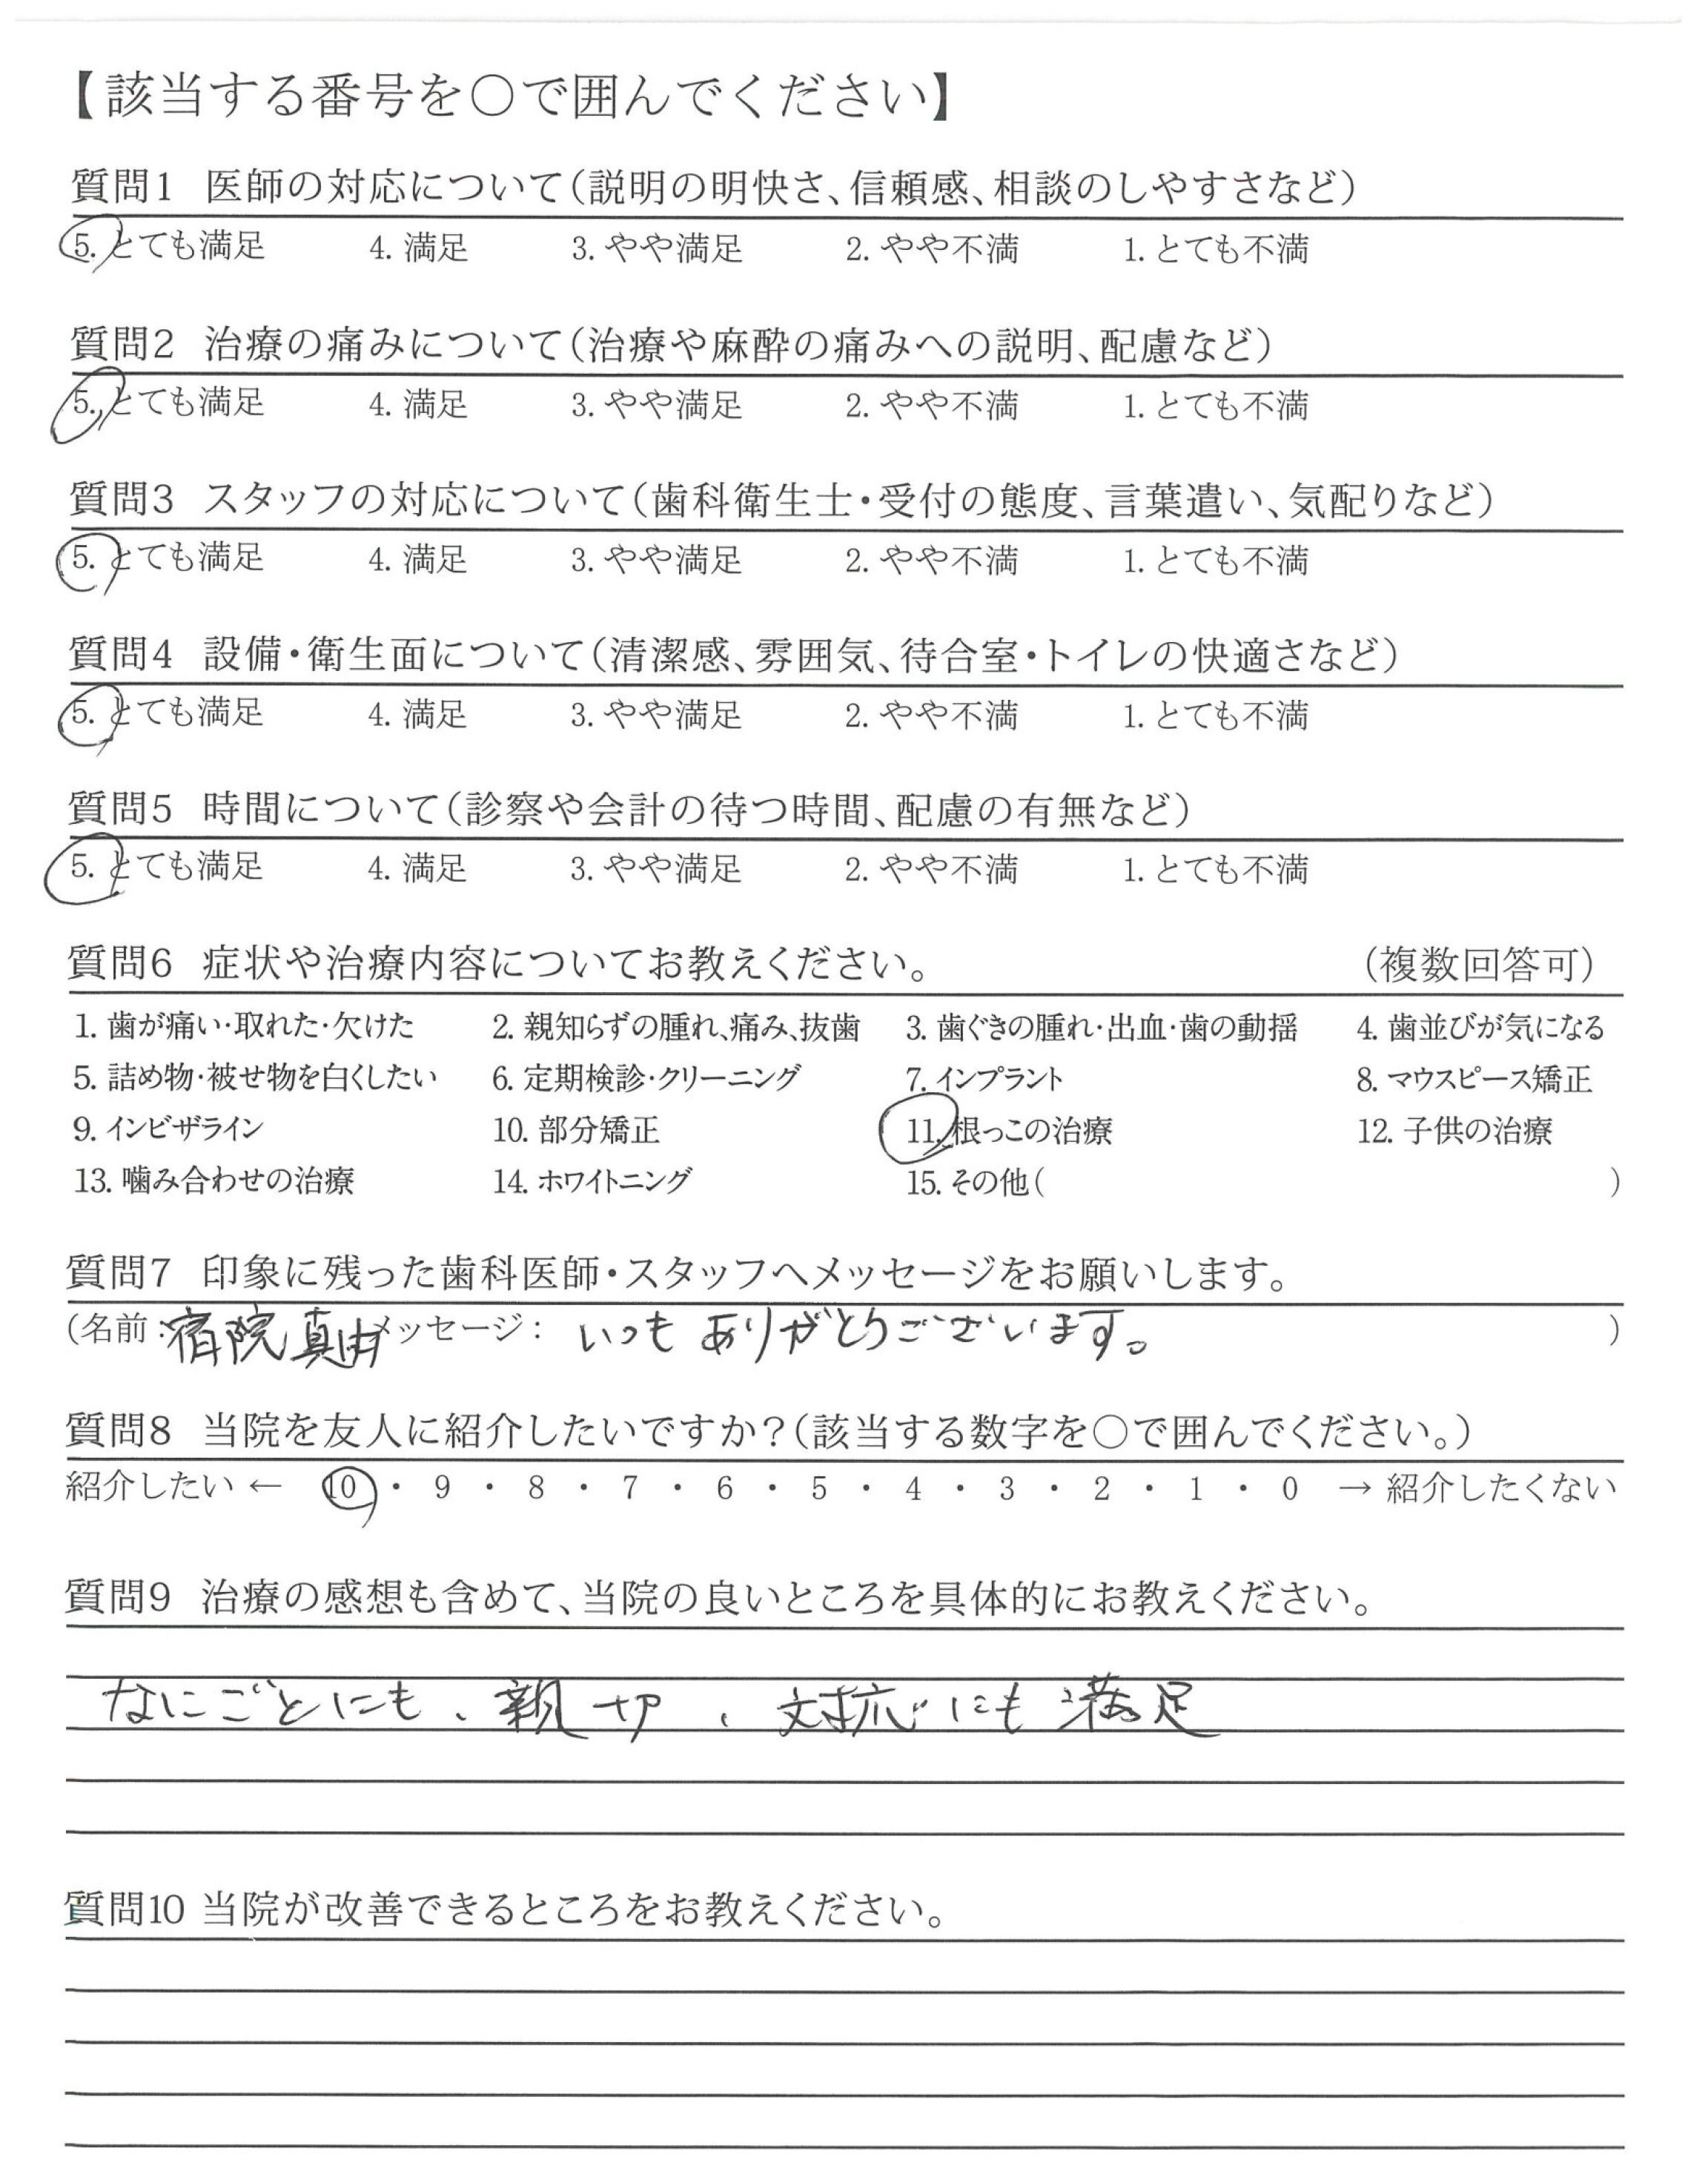 【該当する番号を○で囲んでください】
質問1 医師の対応について（説明の明快さ、信頼感、相談のしやすさなど）
5. とても満足 4. 満足 3. やや満足 2. やや不満 1. とても不満
質問2 治療の痛みについて（治療や麻酔の痛みへの説明、配慮など）
5. とても満足 4. 満足 3. やや満足 2. やや不満 1. とても不満
質問3 スタッフの対応について（歯科衛生士・受付の態度、言葉遣い、気配りなど）
5. とても満足 4. 満足 3. やや満足 2. やや不満 1. とても不満
質問4 設備・衛生面について（清潔感、雰囲気、待合室・トイレの快適さなど）
5. とても満足 4. 満足 3. やや満足 2. やや不満 1. とても不満
質問5 時間について（診察や会計の待つ時間、配慮の有無など）
5. とても満足 4. 満足 3. やや満足 2. やや不満 1. とても不満
質問6 症状や治療内容についてお教えください。 （複数回答可）
1. 歯が痛い・取れた・欠けた 2. 親知らずの腫れ、痛み、抜歯 3. 歯ぐきの腫れ・出血・歯の動揺 4. 歯並びが気になる
5. 詰め物・被せ物を白くしたい 6. 定期検診・クリーニング 7. インプラント 8. マウスピース矯正
9. インビザライン 10. 部分矯正 11. 根っこの治療 12. 子供の治療
13. 噛み合わせの治療 14. ホワイトニング 15. その他（ ）
質問7 印象に残った歯科医師・スタッフへメッセージをお願いします。
（名前：宿院真由 メッセージ： いつもありがとうございます。 ）
質問8 当院を友人に紹介したいですか？（該当する数字を○で囲んでください。）
紹介したい ← 10 ・ 9 ・ 8 ・ 7 ・ 6 ・ 5 ・ 4 ・ 3 ・ 2 ・ 1 ・ 0 → 紹介したくない
質問9 治療の感想も含めて、当院の良いところを具体的にお教えください。
なにごとにも、親切、対応にも満足
質問10 当院が改善できるところをお教えください。